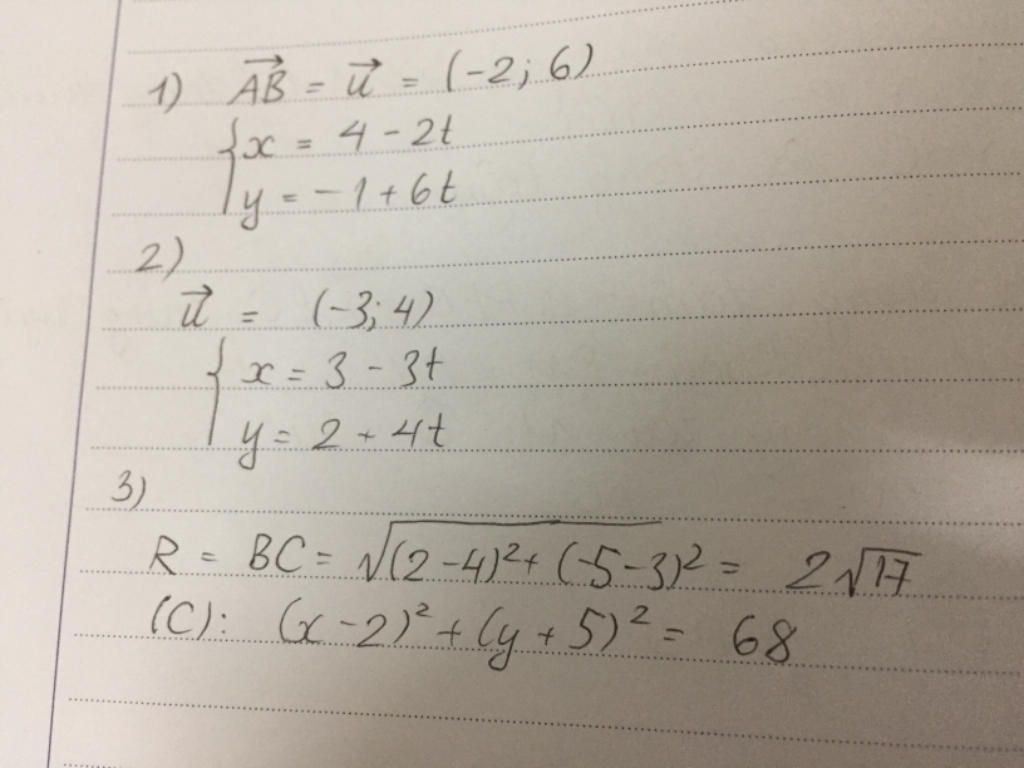 1) $\overrightarrow{AB} = \vec{u} = (-2; 6)$
$\begin{cases} x = 4 - 2t \\ y = -1 + 6t \end{cases}$
2)
$\vec{u} = (-3; 4)$
$\begin{cases} x = 3 - 3t \\ y = 2 + 4t \end{cases}$
3)
$R = BC = \sqrt{(2-4)^2 + (-5-3)^2} = 2\sqrt{17}$
$(C): (x-2)^2 + (y+5)^2 = 68$